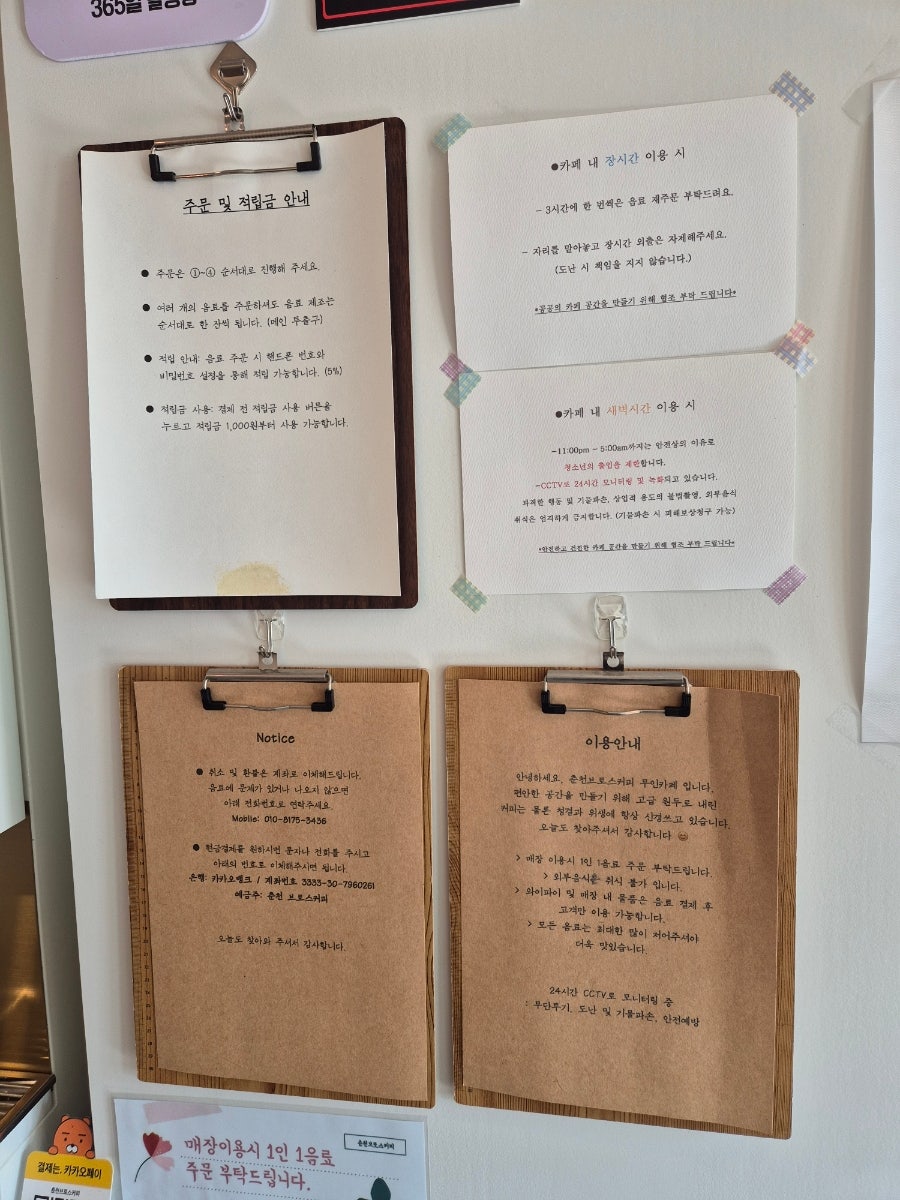 365일
주문 및 적립금 안내
● 주문은 ①~④ 순서대로 진행해 주세요.
● 여러 개의 음료를 주문하셔도 음료 제조는
순서대로 한 잔씩 됩니다. (메인 투출구)
● 적립 안내: 음료 주문 시 핸드폰 번호와
비밀번호 설정을 통해 적립 가능합니다. (5%)
● 적립금 사용: 결제 전 적립금 사용 버튼을
누르고 적립금 1,000원부터 사용 가능합니다.
●카페 내 장시간 이용 시
- 3시간에 한 번씩은 음료 재주문 부탁드려요.
- 자리를 맡아놓고 장시간 외출은 자제해주세요.
(도난 시 책임을 지지 않습니다.)
*공공의 카페 공간을 만들기 위해 협조 부탁 드립니다*
●카페 내 새벽시간 이용 시
-11:00pm - 5:00am까지는 안전상의 이유로
청소년의 출입을 제한합니다.
-CCTV로 24시간 모니터링 및 녹화되고 있습니다.
과격한 행동 및 기물파손, 상업적 용도의 불법촬영, 외부음식
취식은 엄격하게 금지합니다. (기물파손 시 피해보상청구 가능)
*안전하고 건전한 카페 공간을 만들기 위해 협조 부탁 드립니다*
Notice
● 취소 및 환불은 계좌로 이체해드립니다.
음료에 문제가 있거나 나오지 않으면
아래 전화번호로 연락주세요.
Moblie: 010-8175-3436
● 현금결제를 원하시면 문자나 전화를 주시고
아래의 번호로 이체해주시면 됩니다.
은행: 카카오뱅크 / 계좌번호 3333-30-7960261
예금주: 춘천 브로스커피
오늘도 찾아와 주셔서 감사합니다.
이용안내
안녕하세요, 춘천브로스커피 무인카페 입니다.
편안한 공간을 만들기 위해 고급 원두로 내린
커피는 물론 청결과 위생에 항상 신경쓰고 있습니다.
오늘도 찾아주셔서 감사합니다 😊
> 매장 이용시 1인 1음료 주문 부탁드립니다.
> 외부음식은 취식 불가 입니다.
> 와이파이 및 매장 내 물품은 음료 결제 후
고객만 이용 가능합니다.
> 모든 음료는 최대한 많이 저어주셔야
더욱 맛있습니다.
24시간 CCTV로 모니터링 중
: 무단투기, 도난 및 기물파손, 안전예방
춘천브로스커피
매장이용시 1인 1음료
주문 부탁드립니다.
결제는, 카카오페이
춘천브로스커피